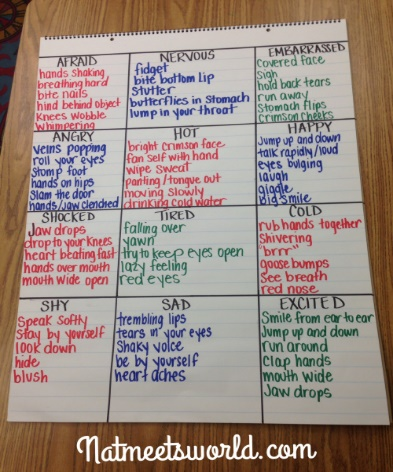 AFRAID
hands shaking
breathing hard
bite nails
hind behind object
Knees wobble
Whimpering
NERVOUS
fidget
bite bottom lip
Stutter
butterflies in stomach
lump in your throat
EMBARRASSED
Covered face
Sigh
hold back tears
run away
Stomach flips
crimson cheeks
ANGRY
veins popping
roll your eyes
Stomp foot
hands on hips
Slam the door
hands/jaw clenched
HOT
bright crimson face
fan self with hand
wipe sweat
panting/tongue out
moving slowly
drinking cold water
HAPPY
Jump up and down
talk rapidly/loud
eyes bulging
laugh
giggle
big smile
SHOCKED
Jaw drops
drop to your knees
heart beating fast
hands over mouth
mouth wide open
TIRED
falling over
yawn
try to keep eyes open
lazy feeling
red eyes
COLD
rub hands together
Shivering
"brrr"
goosebumps
See breath
red nose
SHY
Speak Softly
Stay by yourself
look down
hide
blush
SAD
trembling lips
tears in your eyes
Shaky voice
be by yourself
heart aches
EXCITED
Smile from ear to ear
Jump up and down
run around
Clap hands
mouth wide
Jaw drops
Natmeetsworld.com